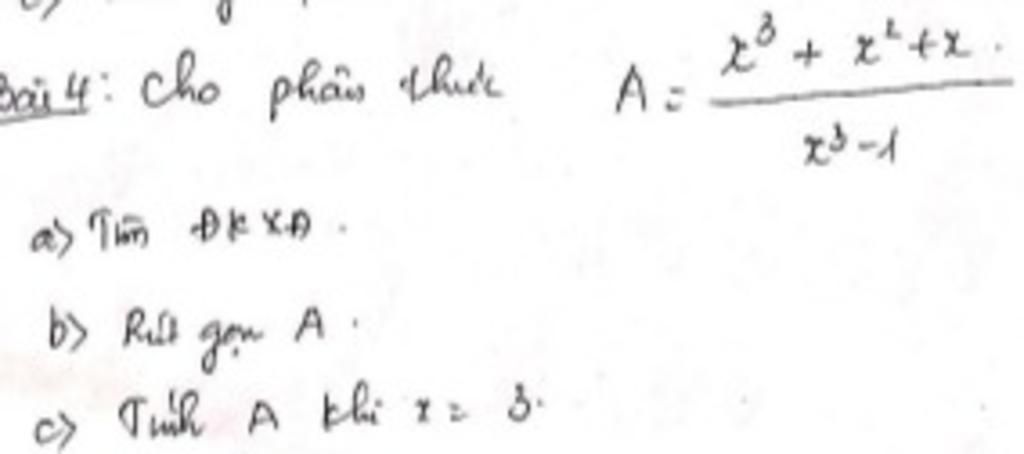 Bài 4: Cho phân thức A = (x³ + x² + x) / (x³ - 1)
a) Tìm ĐKXĐ.
b) Rút gọn A.
c) Tính A khi x = 3.